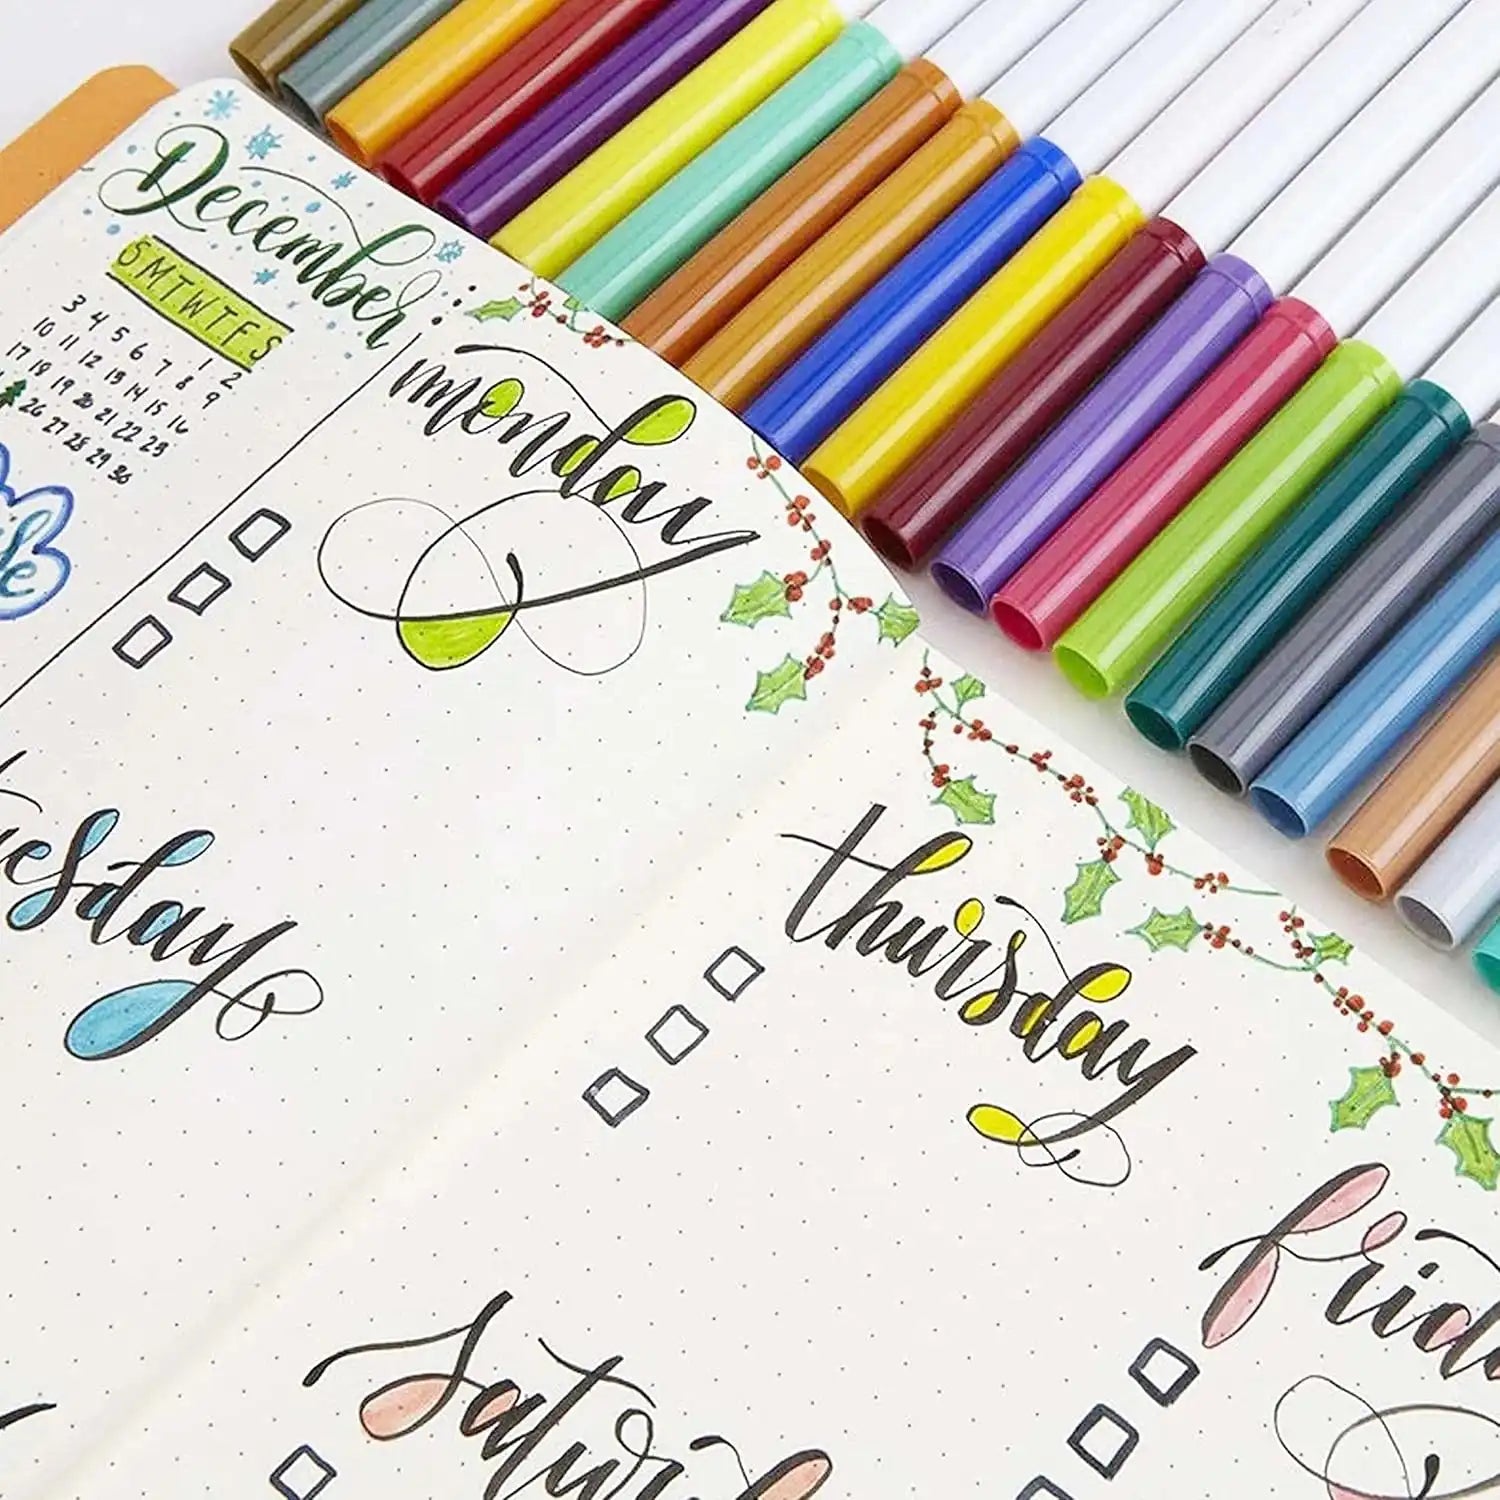 December
S M T W T F S
1 2
3 4 5 6 7 8 9
10 11 12 13 14 15 16
17 18 19 20 21 22 23
26 27 28 29 30
monday
tuesday
thursday
friday
satur